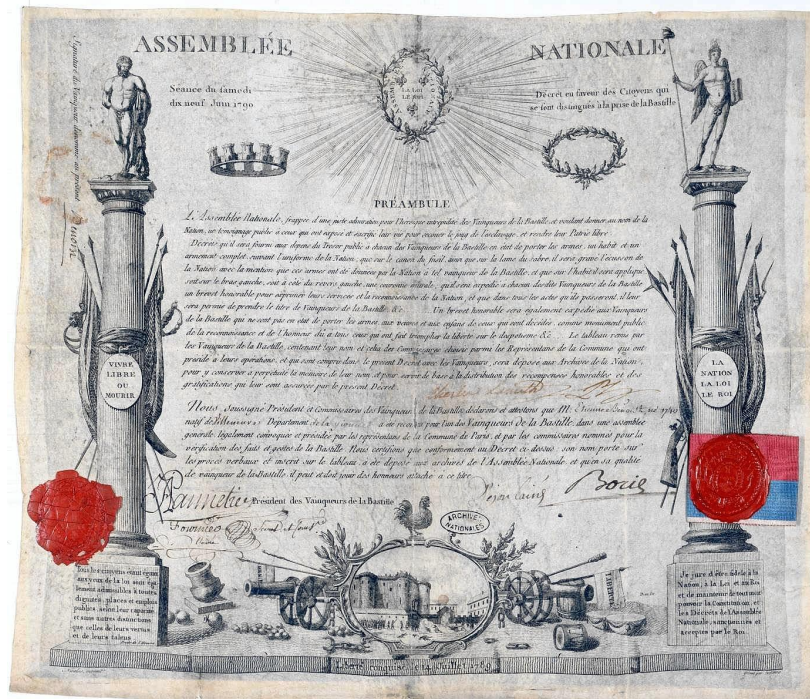 ASSEMBLÉE NATIONALE
Séance du samedi
dix neuf Juin 1790
LA LOI
LE ROI
Décret en faveur des Citoyens qui
se sont distingués à la prise de la Bastille
PRÉAMBULE
L'Assemblée Nationale, frappée d'une juste admiration pour l'heroique intrépidité des Vainqueurs de la Bastille, et voulant donner au nom de la
Nation, un témoignage public à ceux qui ont exposé et sacrifié leur vie pour secouer le joug de l'esclavage, et rendre leur Patrie libre
Décrète qu'il sera fourni aux dépens du Trésor public à chacun des Vainqueurs de la Bastille en état de porter les armes, un habit et un
armement complet, suivant l'uniforme de la Nation, que sur le canon du fusil, ainsi que sur la lame du sabre, il sera gravé l'ecusson de
la Nation avec la mention que ces armes ont été données par la Nation à tel vainqueur de la Bastille, et que sur l'habit il sera appliqué
soit sur le bras gauche, soit à côté du revers gauche, une couronne murale, qu'il sera expédié à chacun des dits Vainqueurs de la Bastille
un brevet honorable pour exprimer leurs services et la reconnoissance de la Nation, et que dans tous les actes qu'ils passeront, il leur
sera permis de prendre le titre de Vainqueurs de la Bastille &c. Un brevet honorable sera également expédié aux Vainqueurs
de la Bastille qui ne sont pas en état de porter les armes, aux veuves et aux enfans de ceux qui sont décédés, comme monument public
de la reconnoissance et de l'honneur dû à tous ceux qui ont fait triompher la liberté sur le despotisme &c. Le tableau remis par
les Vainqueurs de la Bastille, contenant leurs noms et celui des Commissaires choisis parmi les Représentans de la Commune qui ont
présidé à leurs opérations, et qui sont compris dans le présent Décret avec les Vainqueurs, sera déposé aux Archives de la Nation,
pour y conserver à perpétuité la mémoire de leur nom, et pour servir de base à la distribution des récompenses honorables et des
gratifications qui leur sont assurées par le présent Décret.
Nous, Soussigné Président et Commissaires des Vainqueurs de la Bastille, déclarons et attestons que M. Etienne
natif de Département de a été reçu l'un des Vainqueurs de la Bastille dans une assemblée
générale légalement convoquée et présidée par les représentans de la Commune de Paris, et par les commissaires nommés pour la
vérification des faits et gestes de la Bastille. Nous certifions que conformément au Décret ci-dessus son nom porté sur
les procès verbaux et inscrit sur le tableau a été déposé aux archives de l'Assemblée Nationale et qu'en sa qualité
de vainqueur de la Bastille, il peut et doit jouir des honneurs attachés à ce titre.
Président des Vainqueurs de la Bastille
Borie
ARCHIVES
NATIONALES
VIVRE
LIBRE
OU
MOURIR
LA
NATION
LA LOI
LE ROI
Tous les citoyens étant égaux
aux yeux de la loi sont éga-
lement admissibles à toutes
dignités, places et emplois
publics, selon leur capacité
et sans autres distinctions
que celles de leurs vertus
et de leurs talens
Je jure d'être fidèle à la
Nation, à la Loi et au Roi
et de maintenir de tout mon
pouvoir la Constitution et
les Décrets de l'Assemblée
Nationale, sanctionnés et
acceptés par le Roi.
Liberté conquise le 14 Juillet 1789